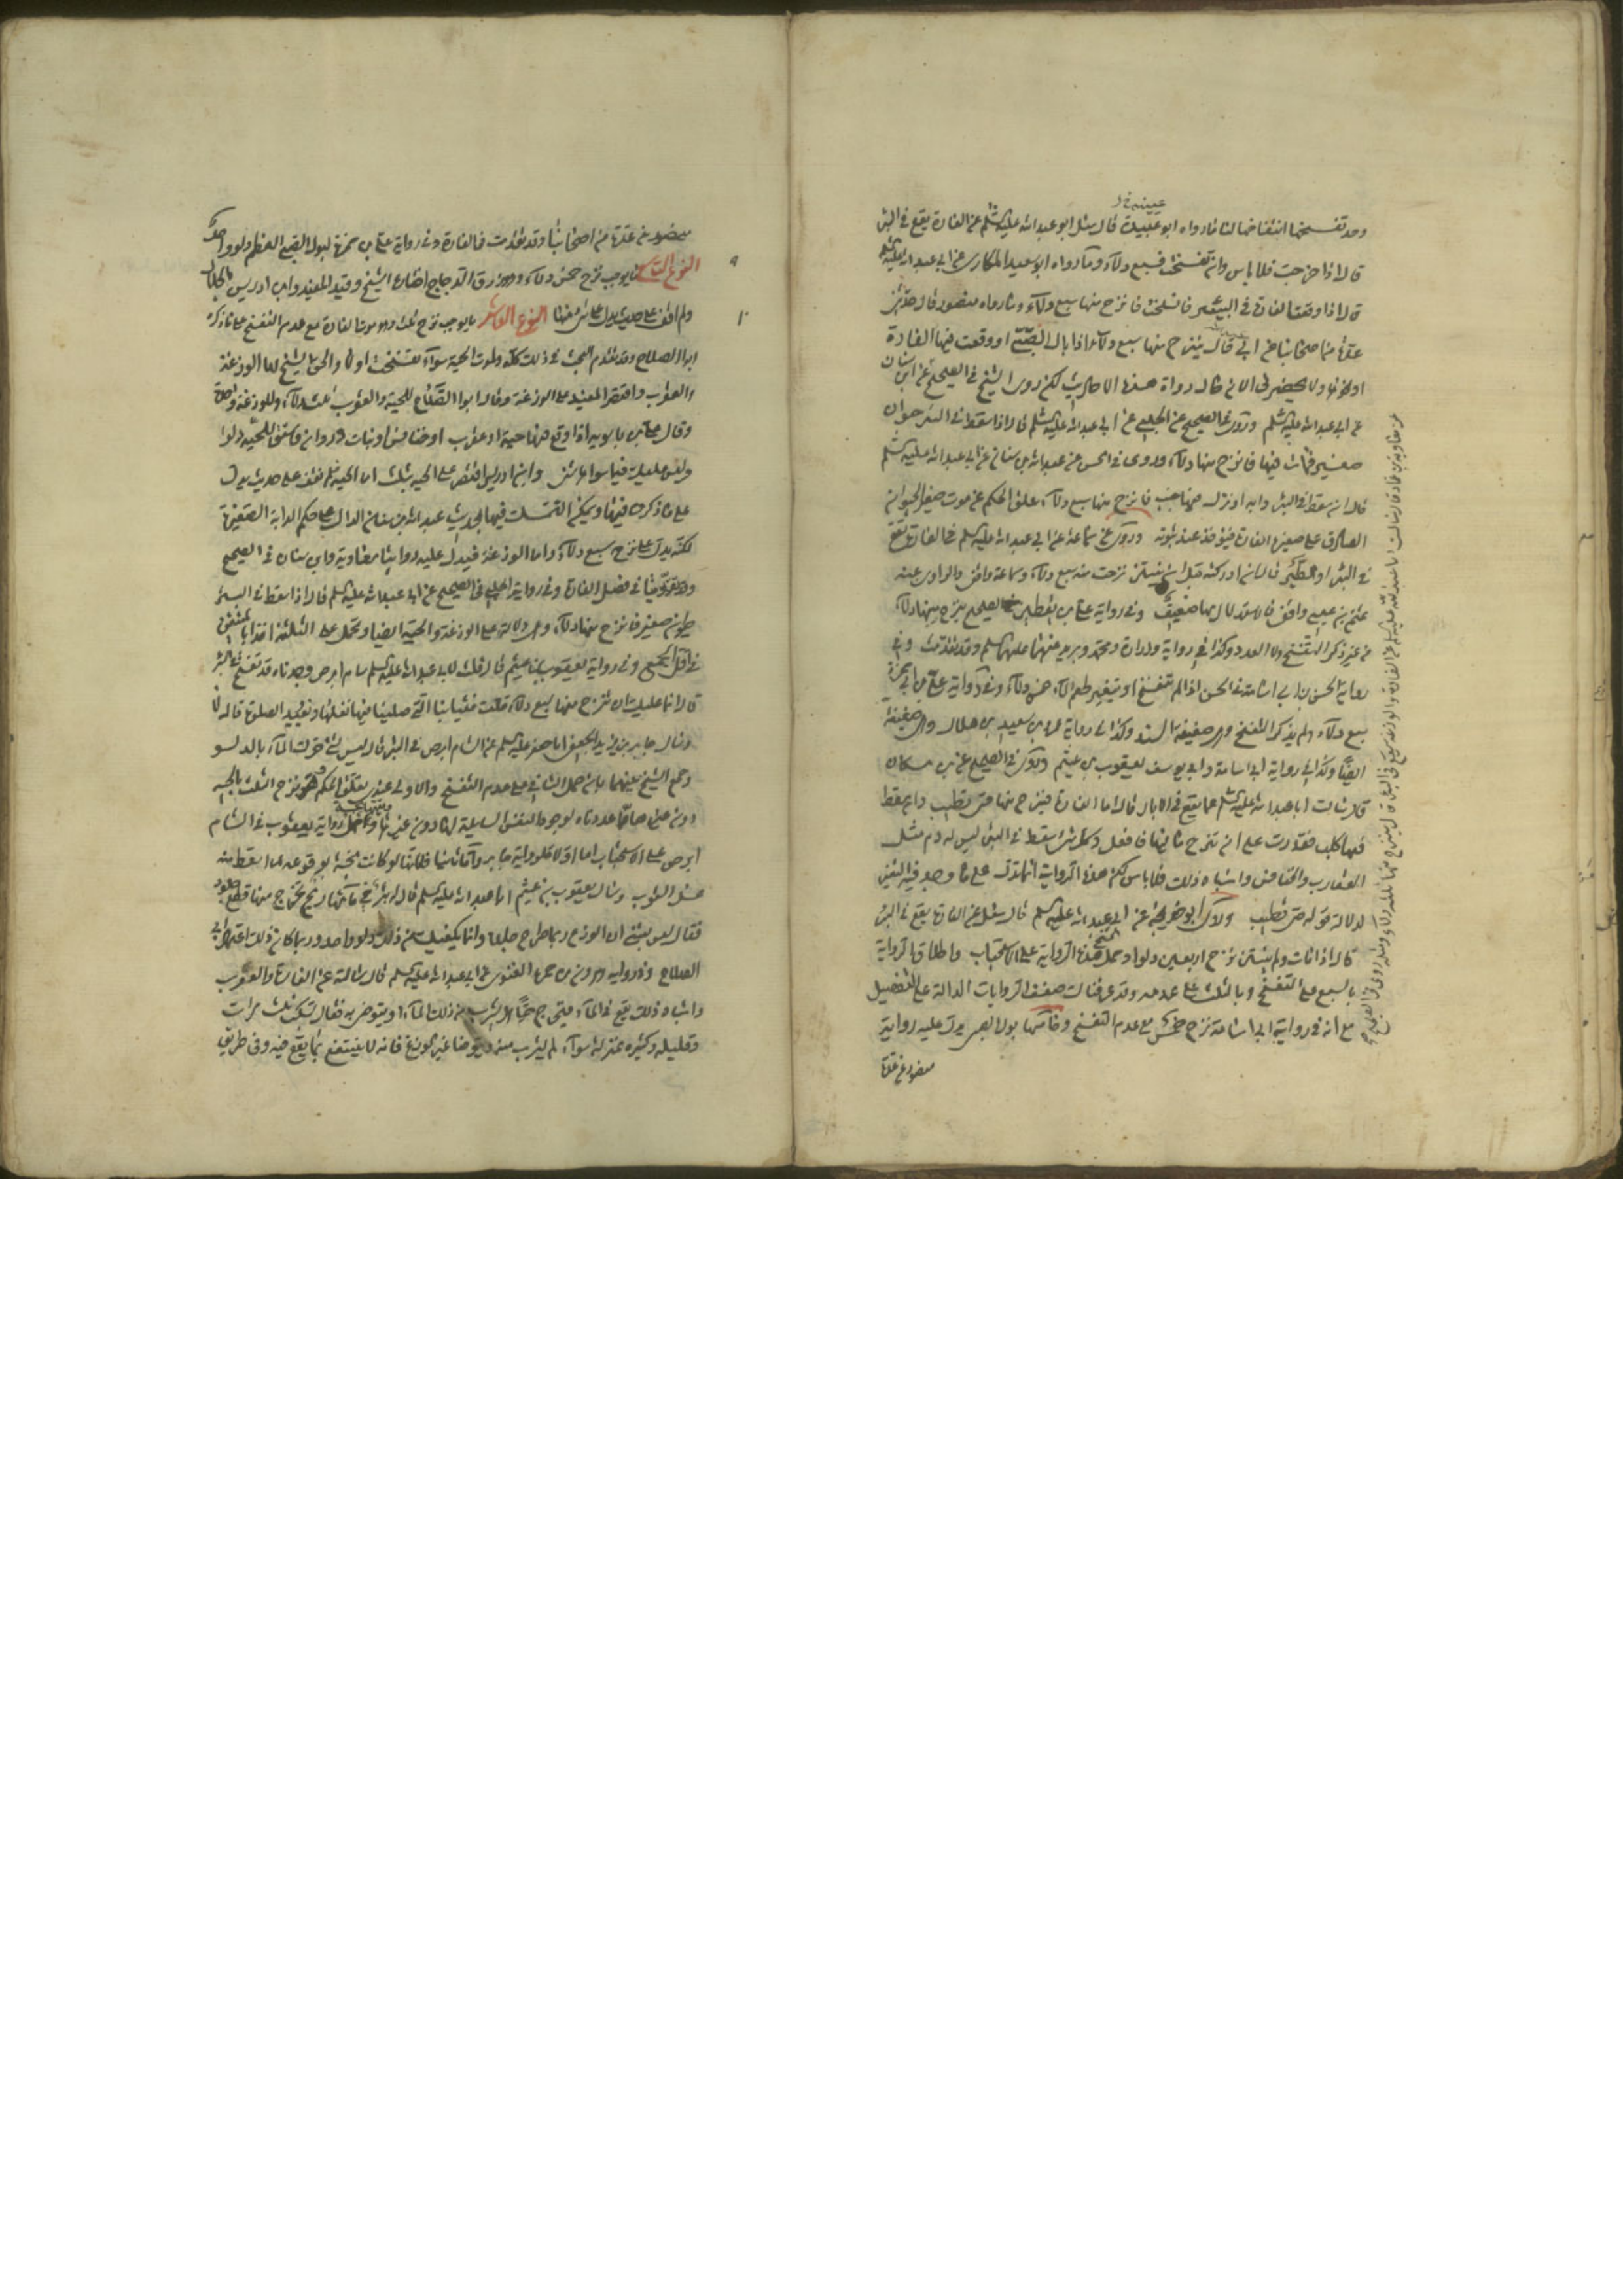 عيينة خ ل
وحد تفسخها انتفاخها لنا ما رواه ابو عيينة قال سئل ابو عبد الله عليه السلم عن الفارة يقع في البئر
قال اذا خرجت فلا باس وان تفسخت فسبع دلاء وما رواه ابو سعيد المكاري عن ابي عبد الله عليه السلم
قال اذا وقعت الفارة في البئر فتسلخت فانزح منها سبع دلاء وما رواه منصور قال حدثني
عدة من اصحابنا عن ابي عبد الله قال ينزح منها سبع دلاء اذا بال الصبي او وقعت فيها الفارة
او نحوها ولا يحضرني الان حال رواة هذه الاحاديث لكن روى الشيخ في الصحيح عن ابن سنان
عن ابي عبد الله عليه السلم وروى في الصحيح عن الحلبي عن ابي عبد الله عليه السلم قال اذا سقط في البئر حيوان
صغير فمات فيها فانزح منها دلاء وروى في الحسن عن عبد الله بن سنان عن ابي عبد الله عليه السلم
قال ان سقط في البئر دابة او نزل فيها جنب فانزح منها سبع دلاء علق الحكم على موت صغير الحيوان
الصادق على صغيرها الفارة فيؤخذ عند ثبوته وروى عن سماعة عن ابي عبد الله عليه السلم في الفارة تقع
في البئر او الطير قال ان ادركته قبل ان ينتن نزحت منه سبع دلاء وسماعة واقفي والراوي عنه
عثمن بن عيسى واقفي فالاستدلال بها ضعيف وفي رواية علي بن يقطين في الصحيح ينزح منها دلاء
من غير ذكر التفسخ ولا العدد وكذا في رواية زرارة ومحمد وبريد عنهما عليهما السلم وقد تقدمت وفي
رواية الحسن بن ابي اسامة في الحسن اذا لم تتفسخ او يتغير طعم الماء خمس دلاء وفي رواية علي بن ابي حمزة
سبع دلاء ولم يذكر التفسخ وهي ضعيفة السند وكذا في رواية عمرو بن سعيد بن هلال وهي ضعيفة
ايضا وكذا في رواية ابي اسامة وابي يوسف يعقوب بن عثيم وروى في الصحيح عن ابن مسكان
قال سالت ابا عبد الله عليه السلم عما يقع في الابار قال اما الفارة فينزح منها حتى تطيب وان سقط
فيها كلب فقدرت على ان تنزح ماءها فافعل وكل شيء سقط في البئر ليس له دم مثل
العقارب والخنافس واشباه ذلك فلا باس لكن هذه الرواية انما تدل على ما وجد فيه التغير
لدلالة قوله حتى تطيب وروى ابو خديجة عن ابي عبد الله عليه السلم قال سئل عن الفارة تقع في البئر
قال اذا ماتت ولم ينتن نزح اربعين دلوا وحمل الشيخ هذه الرواية على الاستحباب واطلاق الرواية
بالسبع مع التفسخ وبالثلث على عدمه وقد عرفناك ضعف الروايات الدالة على التفصيل
مع انه في رواية ابي اسامة نزح خمس مع عدم التفسخ وخامسها بول الصبي يدل عليه رواية
منصور عن عدة
عن معاوية بن عمار قال سالت ابا عبد الله عليه السلم عن الفارة والوزغة تقع في البئر قال ينزح منها ثلث دلاء ومثله روى في الصحيح
منصور عن عدة من اصحابنا وقد تقدمت في الفارة وفي رواية علي بن ابي حمزة لبول الصبي الفطيم دلو واحد
النوع التاسع ما يوجب نزح خمس دلاء وهو ذرق الدجاج اختاره الشيخ وقيد المفيد وابن ادريس بالجلال
ولم اقف على حديث يدل على شيء منهما النوع العاشر ما يوجب نزح ثلث وهو موت الفارة مع عدم التفسخ على ما ذكره
ابو الصلاح وقد تقدم البحث في ذلك كله ولموت الحية سواء تفسخت او لا والحق الشيخ بها الوزغة
والعقرب واقتصر المفيد على الوزغة وقال ابو الصلاح للحية والعقرب ثلث دلاء وللوزغة واحدة
وقال علي بن بابويه اذا وقع فيها حية او عقرب او خنافس او بنات وردان فاستق للحية دلوا
وليس عليك فيما سواها شيء وابن ادريس اقتصر على الحية بثلث اما الحية فلم نقف على حديث يدل
على ما ذكروه فيها ويمكن التمسك فيها بحديث عبد الله بن سنان الدال على حكم الدابة الصغيرة
لكنه يدل على نزح سبع دلاء واما الوزغة فيدل عليه رواية معاوية وابن سنان في الصحيح
وقد تقدمتا في فصل الفارة وفي رواية الحلبي في الصحيح عن ابي عبد الله عليه السلم قال اذا سقط في البئر
حيوان صغير فانزح منها دلاء وهي دالة على الوزغة والحية ايضا ويحمل على الثلثة اخذا بالمتيقن
في اقل الجمع وفي رواية يعقوب بن عثيم قال قلت لابي عبد الله عليه السلم سام ابرص وجدناه قد تفسخ في البئر
قال انما عليك ان تنزح منها سبع دلاء قلت فثيابنا التي صلينا فيها نغسلها ونعيد الصلوة قال لا
وسال جابر بن يزيد الجعفي ابا جعفر عليه السلم عن السام ابرص في البئر قال ليس بشيء حرك الماء بالدلو
وجمع الشيخ بينهما بان حمل الثاني على عدم التفسخ والاولى عندي تعلق الحكم وهو نزح الثلث بالحية
دون ما عداه لوجود النفس السايلة لها دون غيرها وتحمل رواية يعقوب في السام
ابرص على الاستحباب اما اولا فلرواية جابر واما ثانيا فلانها لو كانت نجسة بوقوعه لما اسقط منه
غسل الثوب وسال يعقوب بن عثيم ابا عبد الله عليه السلم قال له بئر في مائها ريح يخرج منها قطع جلود
فقال ليس بشيء ان الوزغ ربما طرح جلده وانما يكفيك من ذلك دلو واحد وربما كان ذلك اعتماد ابي
الصلاح وفي رواية هرون بن حمزة الغنوي عن ابي عبد الله عليه السلم قال سالته عن الفارة والعقرب
واشباه ذلك يقع في الماء فيخرج حيا هل يشرب من ذلك الماء او يتوضى به فقال تسكب ثلث مرات
وقليله وكثيره بمنزلة سواء ثم يشرب منه ويتوضا غير الوزغ فانه لا ينتفع بما يقع فيه وفي طريق
٩
١٠